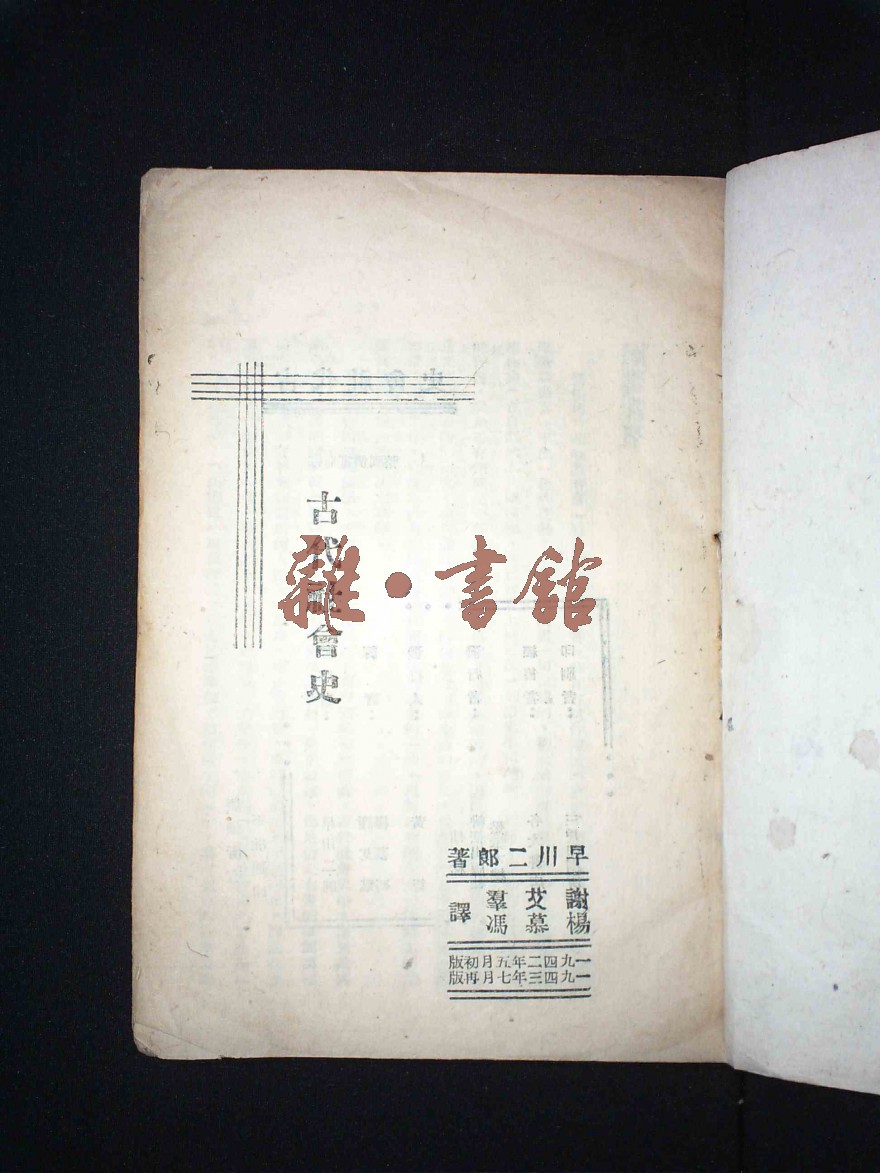 古代社會史
雜·書館
早川二郎著
謝艾羣
楊慕馮
譯
一九四二年五月初版
一九四三年七月再版